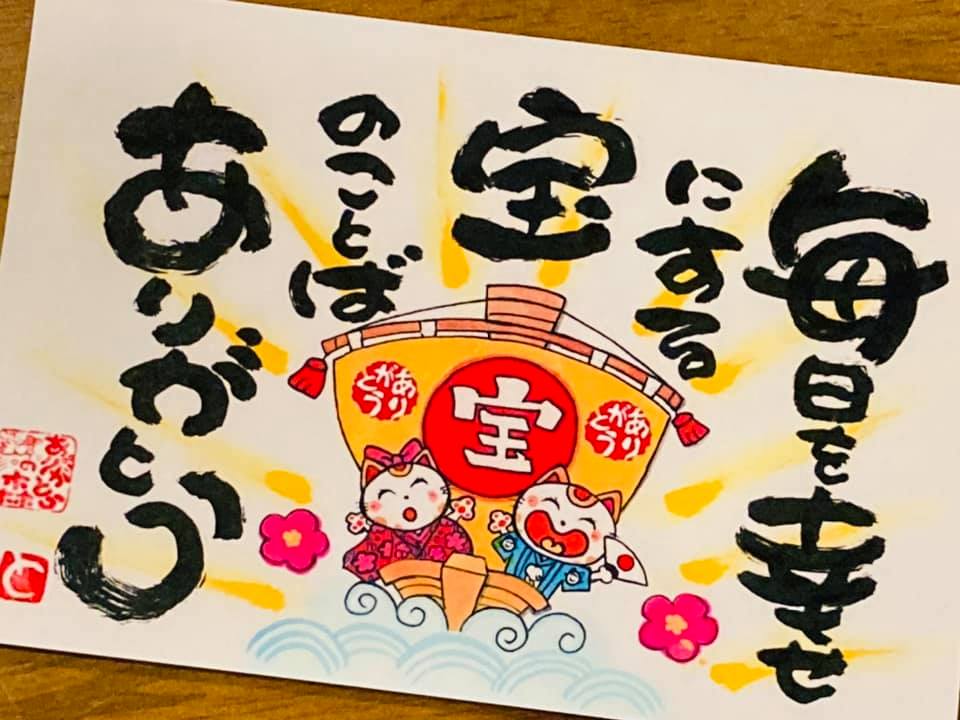 毎日を幸せ
にする
宝
のことば
ありがとう
宝
ありがとう
ありがとう
と